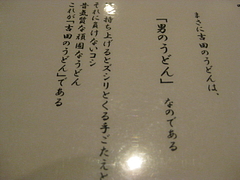 まさに吉田のうどんは、
「男のうどん」なのである
持ち上げるとズシリとくる手ごたえと
それに負けないコシ
昔気質な頑固なうどん
これが「吉田のうどん」である